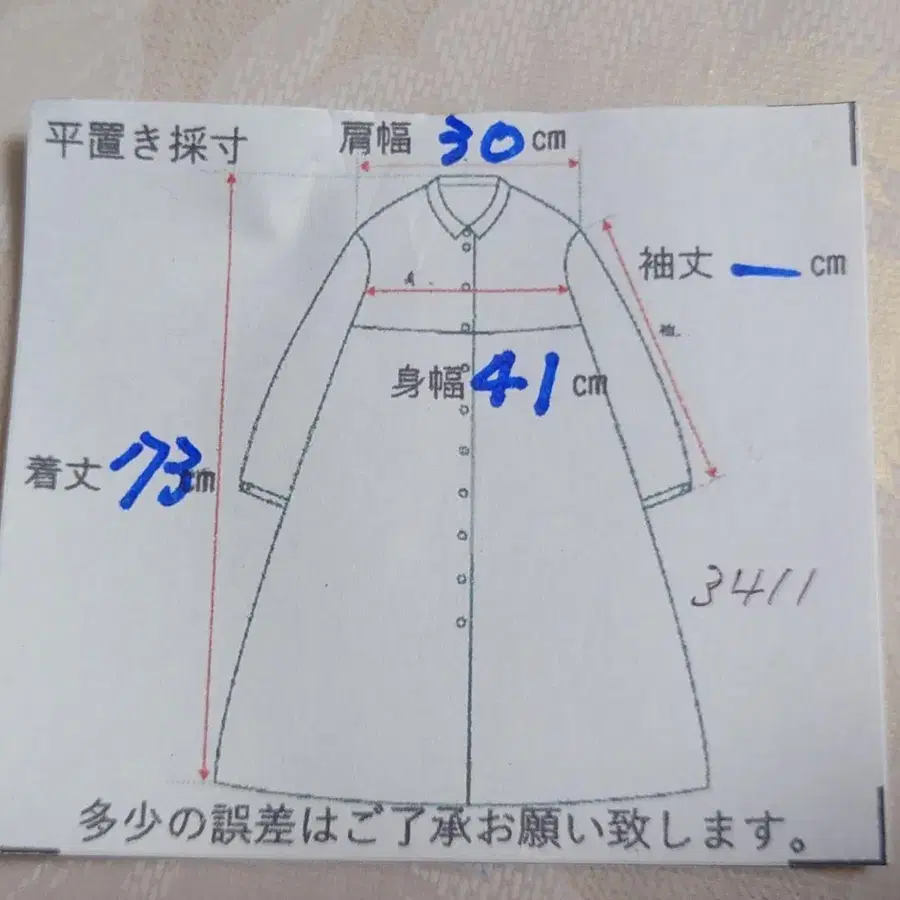 平置き採寸
肩幅 30 cm
袖丈 ー cm
身幅 41 cm
着丈 73 cm
3411
多少の誤差はご了承お願い致します。